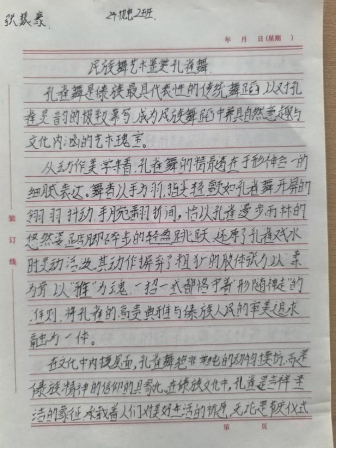 张
民族舞艺术鉴赏孔雀舞
孔雀舞是傣族最具代表性的传统舞蹈,以对孔
雀灵韵的极致摹写,成为民族舞蹈中兼具自然意趣与
文化内涵的艺术瑰宝。
从动作美学来看,孔雀舞的精髓在于形神合一的
细腻表达。舞者以手为羽,指尖轻颤如孔雀舞开屏的
翎羽,时动手腕翻折间,恰似孔雀漫步雨林的
悠然姿态,脚步的轻盈跳跃,还原了孔雀戏水
时灵动活泼,其动作摒弃了粗犷的肢体张力,以柔
为骨,以"雅"为魂,一招一式都恪守着"形随神走"的
准则,将孔雀的高贵典雅与傣族人民的审美追求
融为一体。
在文化内核层面,孔雀舞绝非单纯的动物模仿,而是
傣族精神的信仰的具象化。在傣族文化中,孔雀是吉祥圣
洁的象征,承载着人们对美好生活的祈愿,无论是
仪式
年 月 日(星期 )
装
订
线
第 页